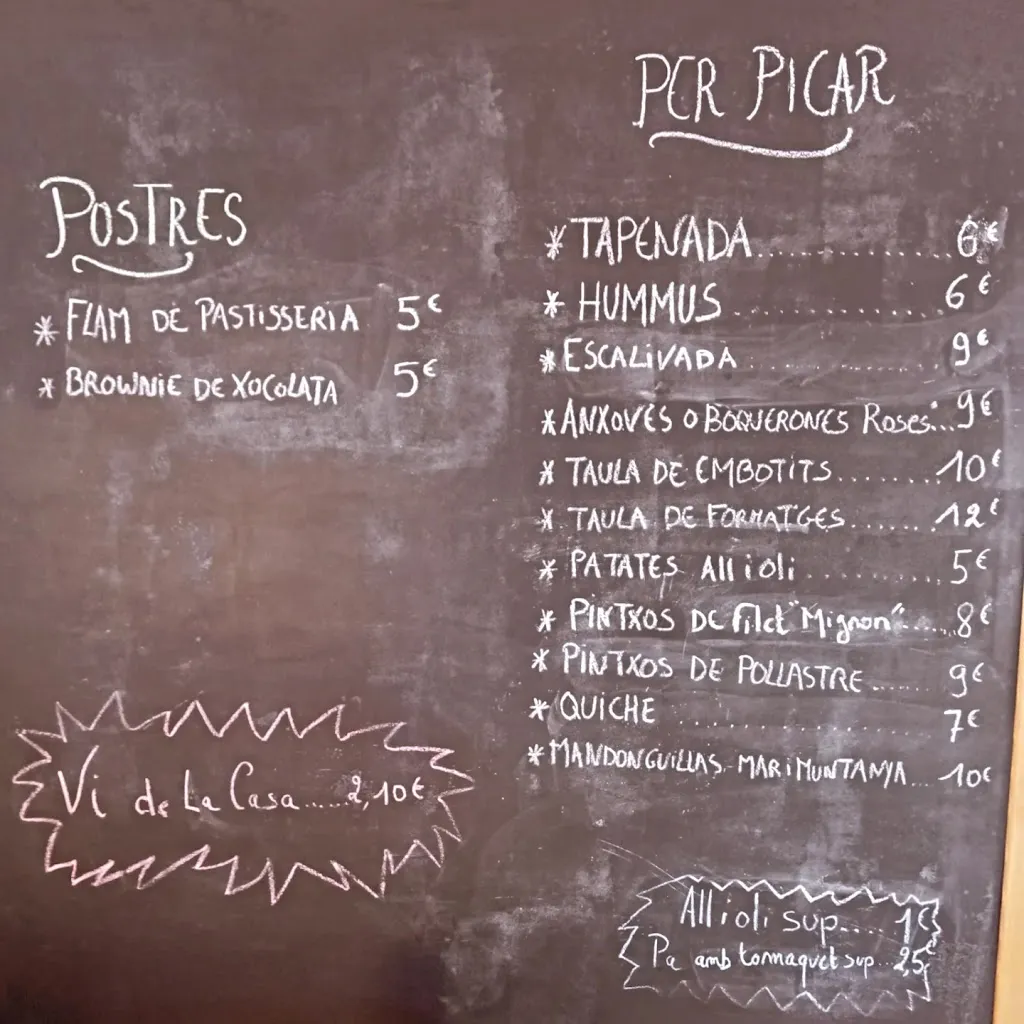 POSTRES
* FLAM DE PASTISSERIA 5€
* BROWNIE DE XOCOLATA 5€
Vi de La Casa......2,10€
PER PICAR
* TAPENADA................6€
* HUMMUS................6€
* ESCALIVADA................9€
* ANXOVES O BOQUERONES ROSES...9€
* TAULA DE EMBOTITS........10€
* TAULA DE FORMATGES......12€
* PATATES All i oli..........5€
* PINTXOS DE filet "Mignon"......8€
* PINTXOS DE POLLASTRE......9€
* QUICHE................7€
* MANDONGUILLAS MAR i MUNTANYA...10€
All i oli sup.....1€
Pa amb tomaquet sup...2,5€